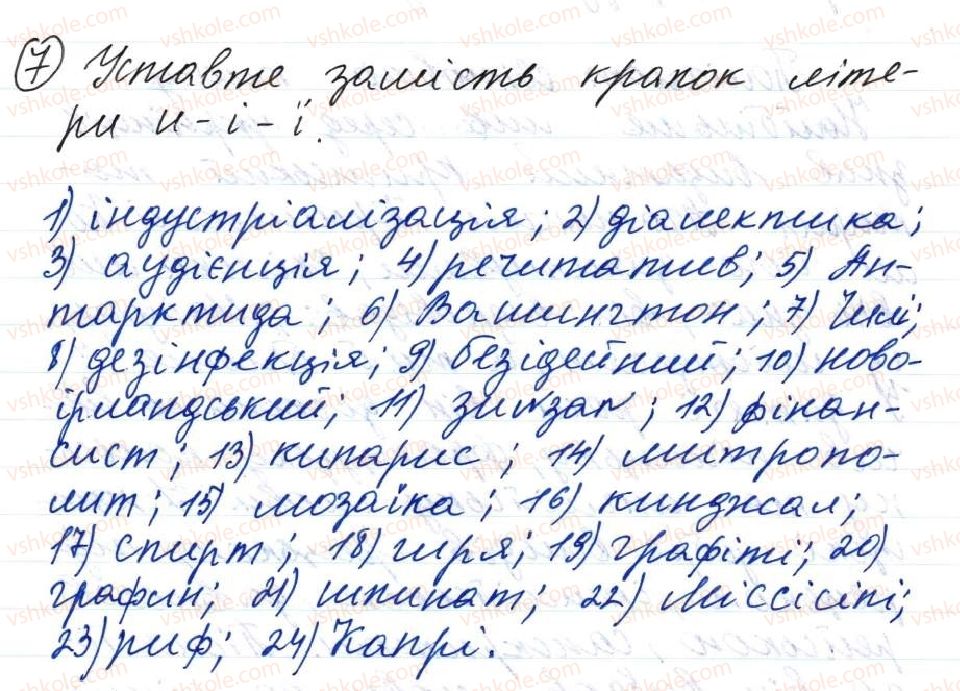 7 Уставте замість крапок літе-
ри и-і-ї.
1) індустріалізація; 2) діалектика;
3) аудієнція; 4) речитатив; 5) Ан-
тарктида; 6) Вашингтон; 7) Чилі;
8) дезінфекція; 9) безідейний; 10) ново-
ірландський; 11) зигзаг; 12) фінан-
сист; 13) кипарис; 14) митропо-
лит; 15) мозаїка; 16) кинджал;
17) спирт; 18) гиря; 19) графіті; 20)
графин; 21) шпинат; 22) Міссісіпі;
23) риф; 24) Капрі.